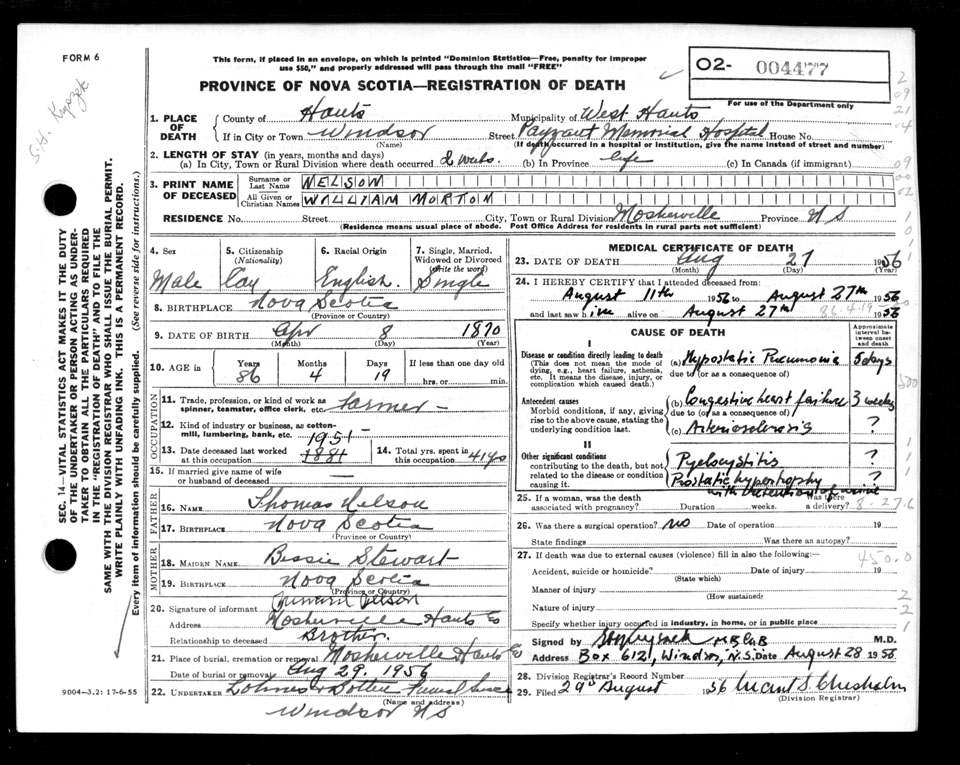 FORM 6
This form, if placed in an envelope, on which is printed "Dominion Statistics—Free, penalty for improper
use $50," and properly addressed will pass through the mail "FREE"
PROVINCE OF NOVA SCOTIA—REGISTRATION OF DEATH
02- 004477
For use of the Department only
1. PLACE OF DEATH
County of Hants Municipality of West Hants
If in City or Town Windsor Street Payzant Memorial Hospital House No.
(Name) (If death occurred in a hospital or institution, give the name instead of street and number)
2. LENGTH OF STAY (in years, months and days)
(a) In City, Town or Rural Division where death occurred 2 wks. (b) In Province life (c) In Canada (if immigrant)
3. PRINT NAME OF DECEASED
Surname or Last Name NELSON
All Given or Christian Names WILLIAM MORTON
RESIDENCE No. Street City, Town or Rural Division Mosherville Province N S
(Residence means usual place of abode. Post Office Address for residents in rural parts not sufficient)
4. Sex Male
5. Citizenship (Nationality) Can
6. Racial Origin English.
7. Single, Married, Widowed or Divorced (Write the word) Single
8. BIRTHPLACE Nova Scotia
(Province or Country)
9. DATE OF BIRTH Apr 8 1870
(Month) (Day) (Year)
10. AGE in Years 86 Months 4 Days 19 If less than one day old hrs. or min.
OCCUPATION
11. Trade, profession, or kind of work as spinner, teamster, office clerk, etc. Farmer -
12. Kind of industry or business, as cotton-mill, lumbering, bank, etc.
13. Date deceased last worked at this occupation 1951
14. Total yrs. spent in this occupation
15. If married give name of wife or husband of deceased —
FATHER
16. NAME Thomas Nelson
17. BIRTHPLACE Nova Scotia
(Province or Country)
MOTHER
18. MAIDEN NAME Bessie Stewart
19. BIRTHPLACE Nova Scotia
(Province or Country)
20. Signature of informant Nelson
Address Mosherville Hants Co
Relationship to deceased Brother.
21. Place of burial, cremation or removal Mosherville Hants Co
Date of burial or removal Aug 29, 1956
22. UNDERTAKER
(Name and address)
Windsor N S
9004—3.2: 17-6-55
MEDICAL CERTIFICATE OF DEATH
23. DATE OF DEATH Aug 27 1956
(Month) (Day) (Year)
24. I HEREBY CERTIFY that I attended deceased from:
August 11th 1956 to August 27th 1956
and last saw him alive on August 27th 1956
86.4.19
CAUSE OF DEATH
Approximate interval between onset and death
I
Disease or condition directly leading to death
(This does not mean the mode of dying, e.g., heart failure, asthenia, etc. It means the disease, injury, or complication which caused death.)
(a) Hypostatic Pneumonia 5 days
due to (or as a consequence of)
Antecedent causes
Morbid conditions, if any, giving rise to the above cause, stating the underlying condition last.
(b) Congestive heart failure 3 weeks
due to (or as a consequence of)
(c) Arteriosclerosis ?
II
Other significant conditions
contributing to the death, but not related to the disease or condition causing it.
Pyelocystitis ?
Prostatic hypertrophy ?
with retention of urine
25. If a woman, was the death associated with pregnancy? Duration weeks. Was there a delivery?
8-27.6
26. Was there a surgical operation? no Date of operation 19
State findings Was there an autopsy?
27. If death was due to external causes (violence) fill in also the following:—
450.0
Accident, suicide or homicide? Date of injury 19
(State which)
Manner of injury
(How sustained)
Nature of injury
Specify whether injury occurred in industry, in home, or in public place
Signed by M.D.
Address Box 612, Windsor, N.S. Date August 28 1956
28. Division Registrar's Record Number
29. Filed 29th August 1956 Chisholm
(Division Registrar)
SEC. 14—VITAL STATISTICS ACT MAKES IT THE DUTY
OF THE UNDERTAKER OR PERSON ACTING AS UNDER-
TAKER TO OBTAIN ALL THE PARTICULARS REQUIRED
IN THE "REGISTRATION OF DEATH" AND TO FILE THE
SAME WITH THE DIVISION REGISTRAR WHO SHALL ISSUE THE BURIAL PERMIT.
WRITE PLAINLY WITH UNFADING INK. THIS IS A PERMANENT RECORD.
Every item of information should be carefully supplied. (See reverse side for instructions.)